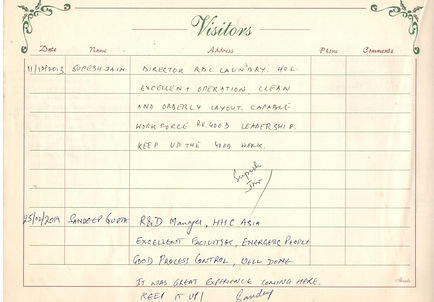 Visitors
Date Name Address Phone Comments
SUPESH JAIN DIRECTOR R&C LAUNDRY. HUL
EXCELLENT OPERATION, CLEAN
AND ORDERLY LAYOUT. CAPABLE
WORK FORCE GOOD LEADERSHIP.
KEEP UP THE GOOD WORK.
Supesh
Jain
25/02/2014 SANDEEP GUPTA R&D Manager, HHC ASIA
EXCELLENT FACILITIES, ENERGETIC PEOPLE
GOOD PROCESS CONTROL, WELL DONE
IT WAS GREAT EXPERIENCE COMING HERE.
KEEP IT UP! Sandeep